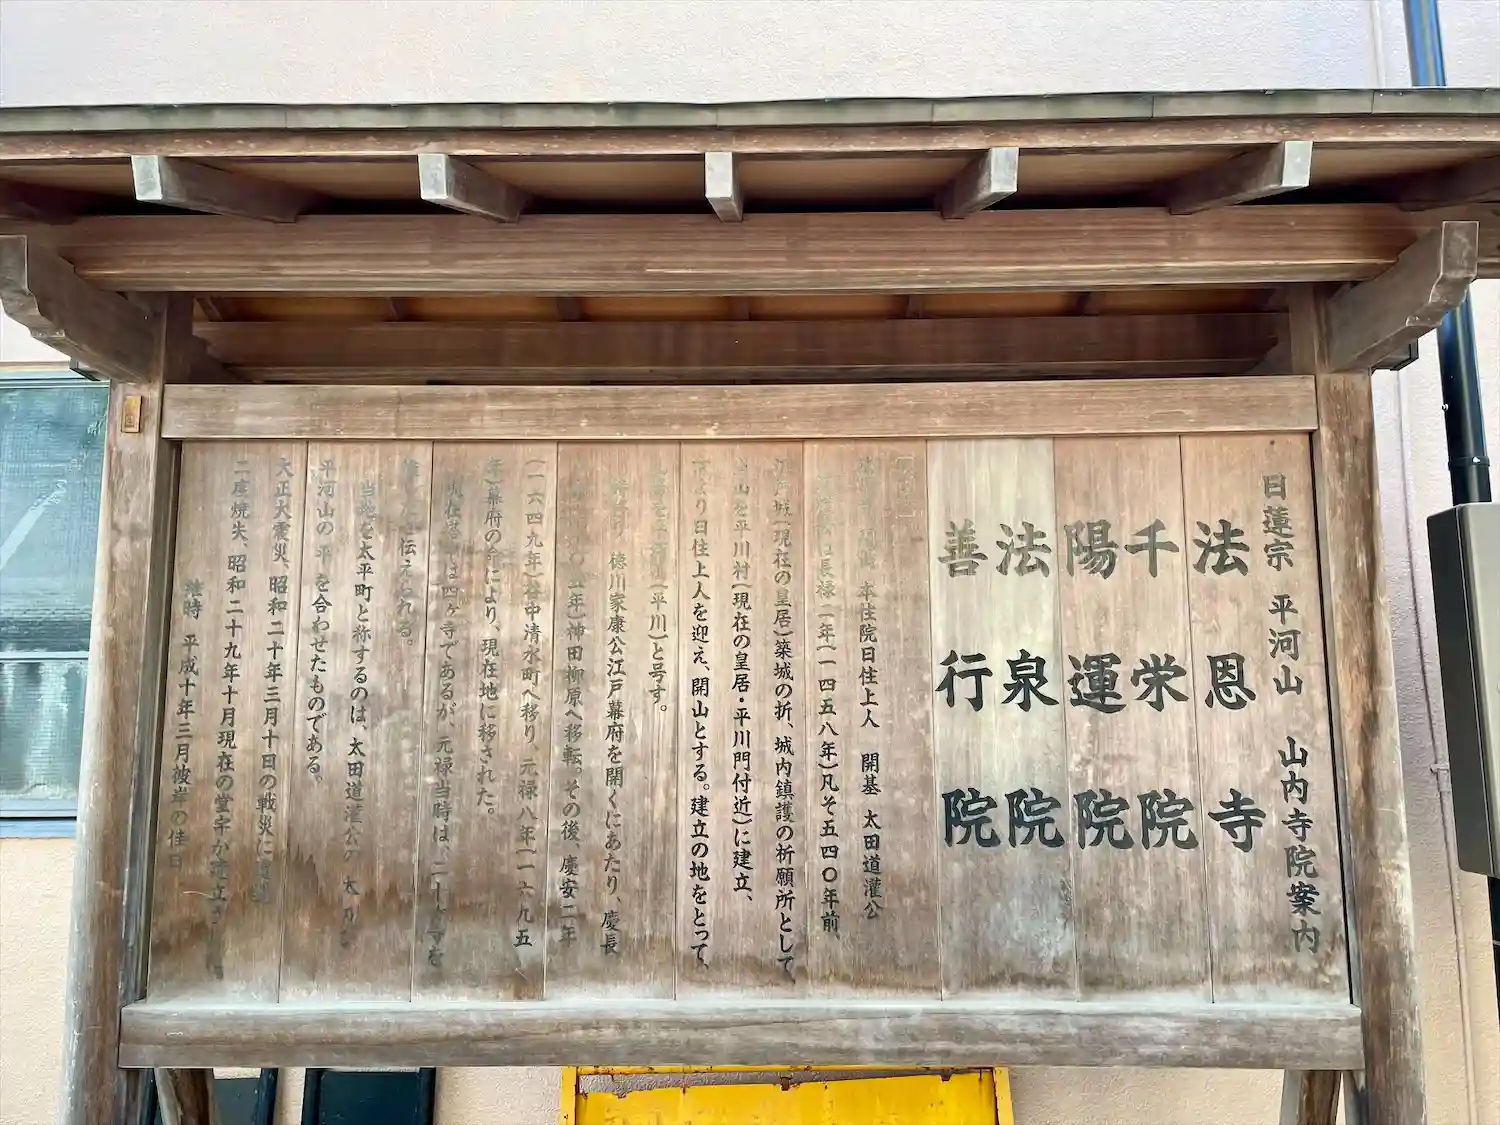 日蓮宗 平河山 山内寺院案内
法恩寺
千栄院
陽運院
法泉院
善行院
開山 本住院日住上人 開基 太田道灌公
長禄二年(一四五八年)凡そ五四〇年前、
江戸城(現在の皇居)築城の折、城内鎮護の祈願所として、
当山を平川村(現在の皇居・平川門付近)に建立、
より日住上人を迎え、開山とする。建立の地をとって、
(平川)と号す。
徳川家康公江戸幕府を開くにあたり、慶長
年)神田柳原へ移転。その後、慶安二年
(一六四九年)谷中清水町へ移り、元禄八年(一六九五
年)幕府の命により、現在地に移された。
現在塔中は四ヶ寺であるが、元禄当時は、二十ヶ寺を
伝えられる。
当地を太平町と称するのは、太田道灌公の太
平河山の平を合わせたものである。
大正大震災、昭和二十年三月十日の戦災に
二度焼失、昭和二十九年十月現在の堂宇が建立さ
維時 平成十年三月彼岸の佳日